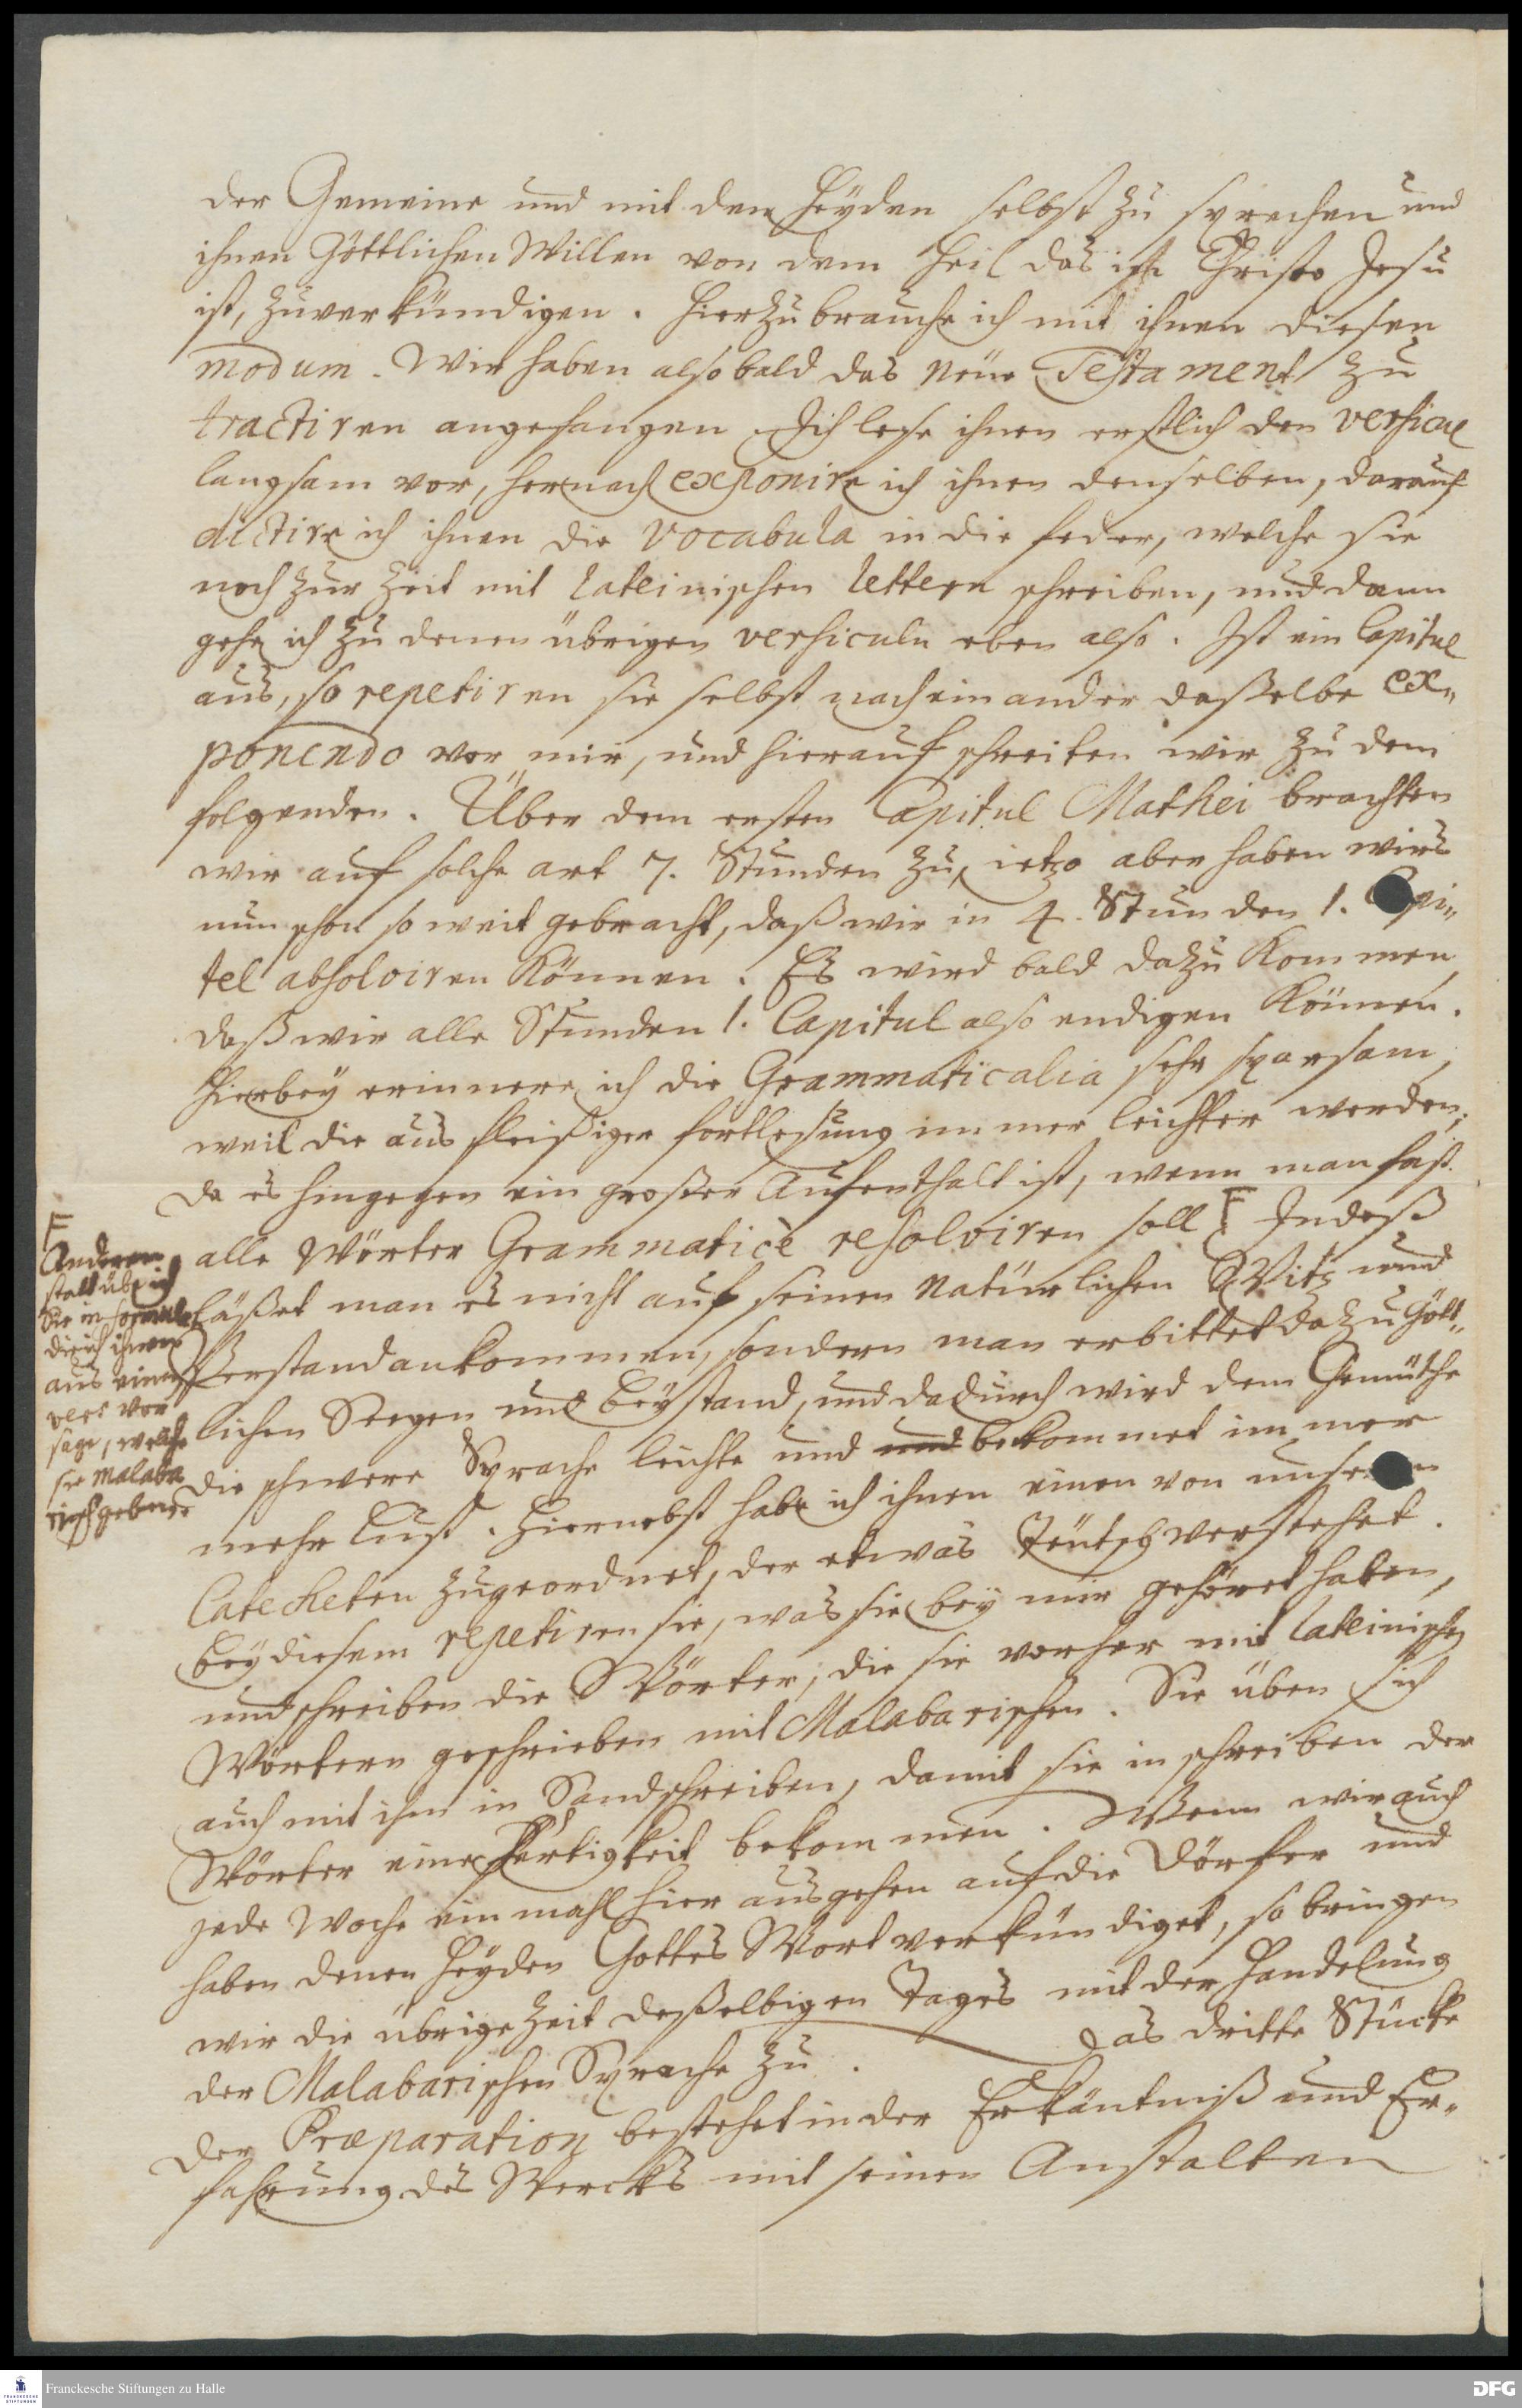 der Gemeine und mit den Heyden selbst zu sprechen und
ihnen Göttlichen Willen von dem Heil das in Christo Jesu
ist, zuverkündigen. Hierzu brauche ich mit ihnen diesen
modum. Wir haben alsobald das Neue Testament zu
tractiren angefangen. Ich lese ihnen erstlich den versicul
langsam vor, hernach exponire ich ihnen denselben, darauf
dictire ich ihnen die vocabula in die feder, welche sie
noch zur Zeit mit lateinischen lettern schreiben, und dann
gehe ich zu denen übrigen versiculn eben also. Ist ein Capitul
aus, so repetiren sie selbst nach einander daßelbe ex-
ponendo vor mir, und hierauf schreiten wir zu dem
folgenden. Über dem ersten Capitul Mathei brachten
wir auf solche art 7. Stunden zu, ietzo aber haben wirs
nun schon so weit gebracht, daß wir in 4. Stunden 1. Capi-
tel absolviren können. Es wird bald dazu kommen,
daß wir alle Stunden 1. Capitul also endigen können.
Hierbey erinnere ich die Grammaticalia sehr sparsam,
weil die aus fleißiger fortlesung immer leichter werden;
da es hingegen ein großer Aufenthalt ist, wenn man fast
alle Wörter Grammaticè resolviren soll F Indeß
läßet man es nicht auf seinen natürlichen Witz und
Verstand ankommen, sondern man erbittet dazu Gött-
lichen Seegen und Beystand, und dadurch wird dem Gemüthe
die schwere Sprache leichte und und bekommet immer
mehr Lust. Hiernebst habe ich ihnen einen von unseren
Catecheten zugeordnet, der etwas Teutsch verstehet.
Bey diesem repetiren sie, was sie bey mir gehöret haben,
und schreiben die Wörter, die sie vorher mit lateinischen
Wörtern geschrieben mit Malabarischen. Sie üben sich
auch mit ihm in Sandschreiben, damit sie in schreiben der
Wörter eine Fertigkeit bekommen. Wenn wir auch
jede Woche einmahl hier ausgehen auf die Dörfer und
haben denen Heyden Gottes Wort verkündiget, so bringen
wir die übrige Zeit deßelbigen Tages mit der Handelung
der Malabarischen Sprache zu. Das dritte Stücke
der Præparation bestehet in der Erkäntniß und Er-
fahrung des Wercks mit seinen Anstalten
F
Anderen
statt übe ich
Sie in formula
die ich ihnen
aus einem
vers vor
sage, welche
sie malaba
risch geben.
Franckesche Stiftungen zu Halle
DFG